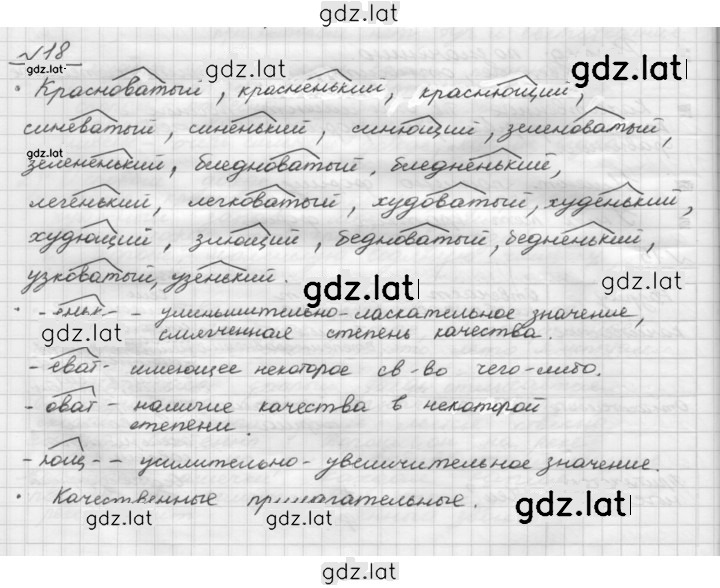 gdz.lat
№18
gdz.lat
gdz.lat
gdz.lat
• Красноватый, красненький, краснющий,
синеватый, синенький, синющий, зеленоватый,
gdz.lat
зелененький, бледноватый, бледненький,
легенький, легковатый, худоватый, худенький,
худющий, злющий, бедноватый, бедненький,
узковатый, узенький.
gdz.lat
gdz.lat
• -еньк- - уменьшительно-ласкательное значение,
смягченная степень качества.
gdz.lat
-еват- имеющее некоторое св-во чего-либо.
-оват- наличие качества в некоторой
степени.
-ющ- - усилительно-увеличительное значение.
• Качественные прилагательные.
gdz.lat
gdz.lat
gdz.lat
gdz.lat